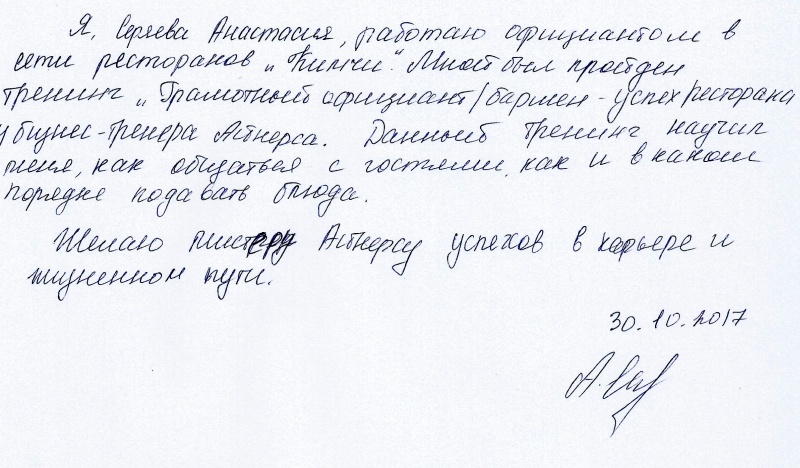 Я, Сергеева Анастасия, работаю официантом в
сети ресторанов „Кимчи". Мной был пройден
тренинг „Грамотный официант/бармен - успех ресторана
у бизнес-тренера Айнерса. Данный тренинг научил
меня, как общаться с гостями, как и в каком
порядке подавать блюда.
Желаю мистеру Айнерсу успехов в карьере и
жизненном пути.
30.10.2017